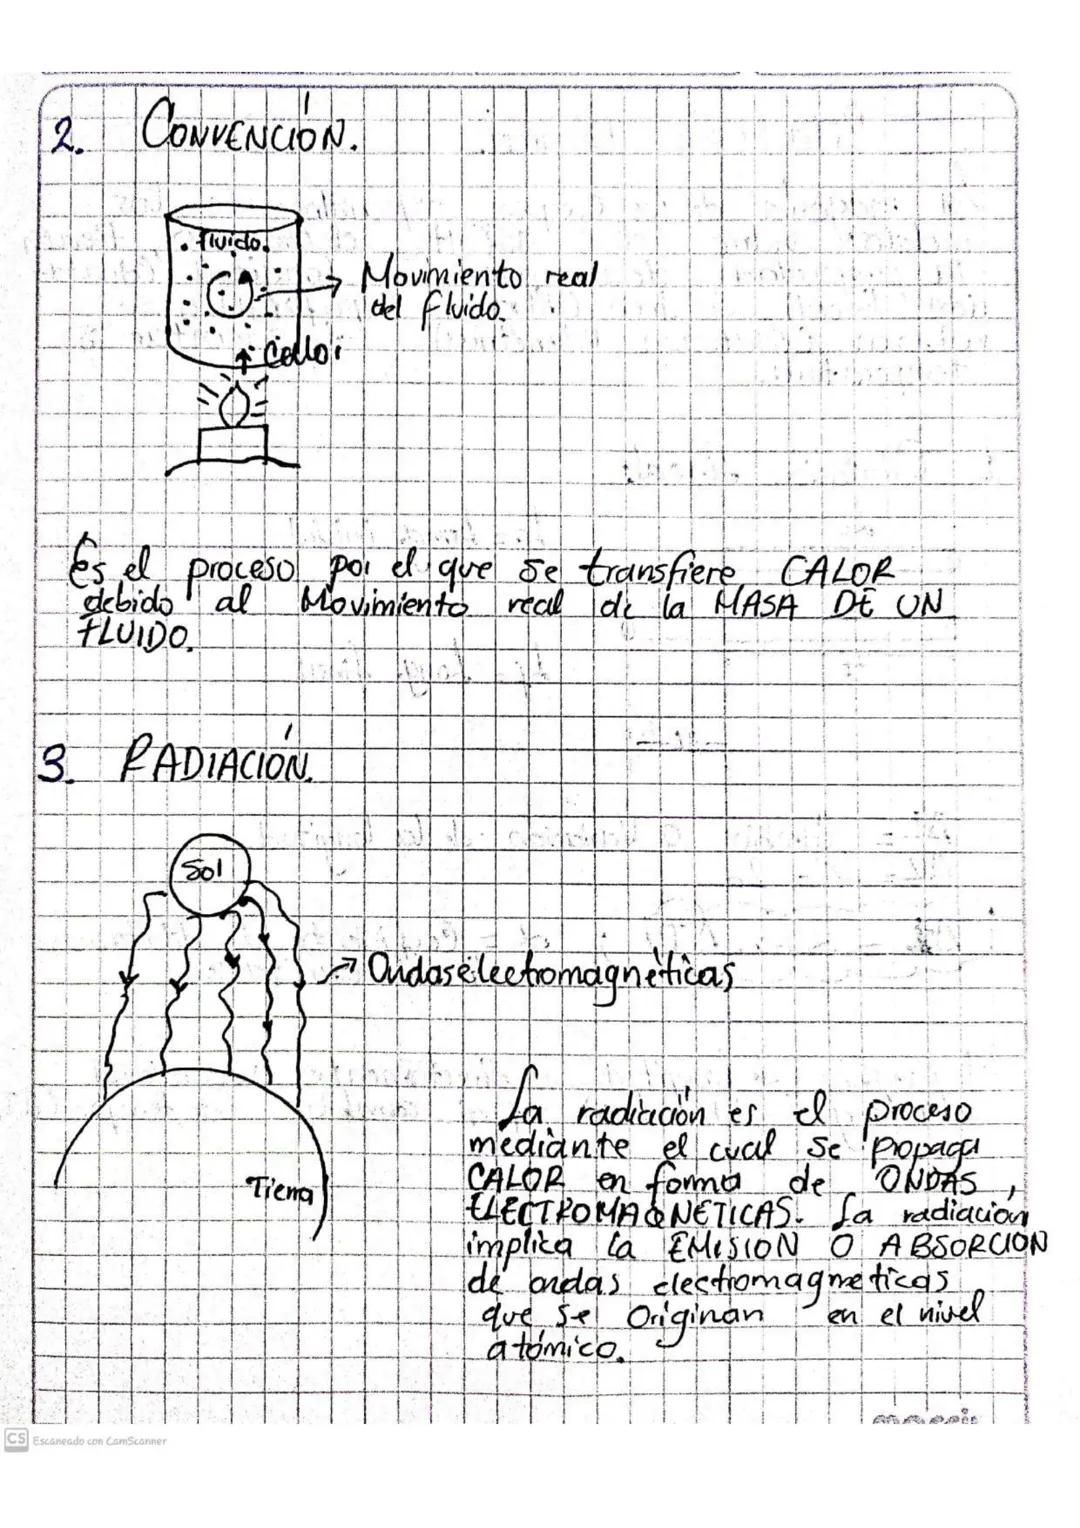 2. CONVENCIÓN.
fluido.
Movimiento real
del fluido.
Calor
Es el proceso por el que se transfiere CALOR
debido al Movimiento real de la MASA DE UN
FLUIDO.
3. RADIACIÓN.
Sol
Ondas electromagnéticas
Tierra
La radiación es el proceso
mediante el cual se propaga
CALOR en forma de ONDAS
ELECTROMAGNÉTICAS. La radiación
implica la EMISION O ABSORCION
de ondas electromagneticas
que se Originan en el nivel
atómico.
CS Escaneado con CamScanner